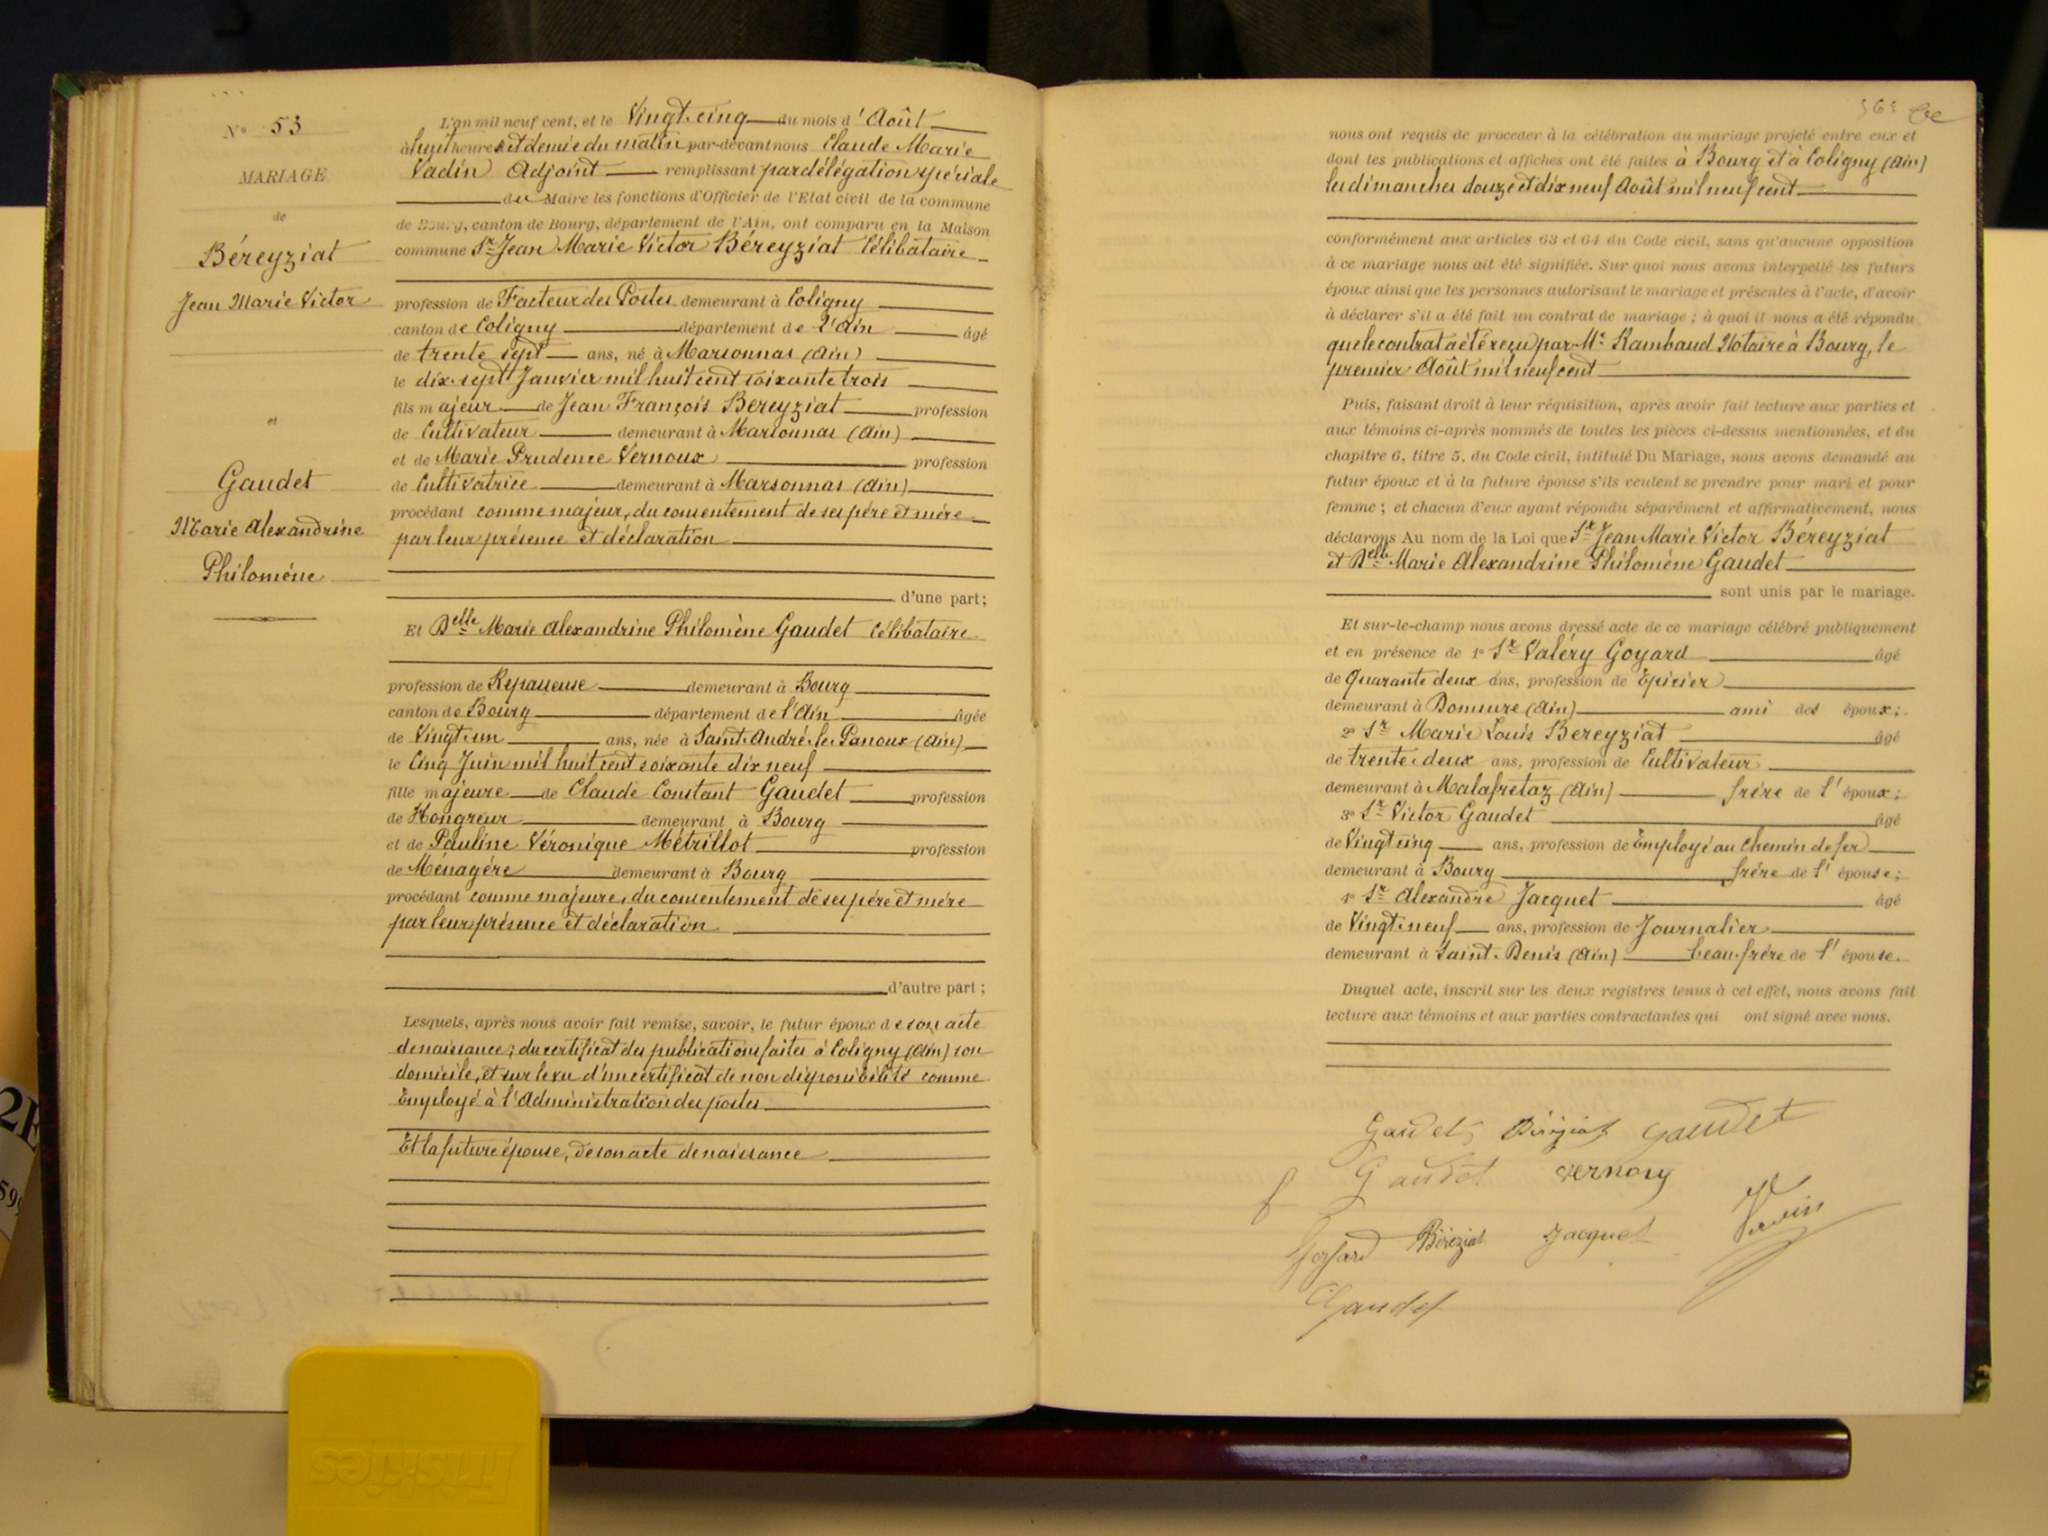 N° 53
MARIAGE
de
Béreyziat
Jean Marie Victor
et
Gaudet
Marie Alexandrine
Philomène
L'an mil neuf cent, et le Vingt-cinq du mois d'Août
à huit heures et demie du matin par-devant nous Claude Marie
Vadin Adjoint remplissant par délégation spéciale
du Maire les fonctions d'Officier de l'Etat civil de la commune
de Bourg, canton de Bourg, département de l'Ain, ont comparu en la Maison
commune Sr Jean Marie Victor Béreyziat Célibataire
profession de Facteur des Postes demeurant à Coligny
canton de Coligny département de L'Ain âgé
de trente sept ans, né à Marsonnas (Ain)
le dix-sept Janvier mil huit cent soixante trois
fils majeur de Jean François Bereyziat profession
de Cultivateur demeurant à Marsonnas (Ain)
et de Marie Prudence Vernoux profession
de Cultivatrice demeurant à Marsonnas (Ain)
procédant comme majeur, du consentement de ses père et mère
par leur présence et déclaration
d'une part;
Et Delle Marie Alexandrine Philomène Gaudet Célibataire
profession de Repasseuse demeurant à Bourg
canton de Bourg département de l'Ain âgée
de Vingt-un ans, née à Saint-André-le-Panoux (Ain)
le Cinq Juin mil huit cent soixante dix neuf
fille majeure de Claude Constant Gaudet profession
de Hongreur demeurant à Bourg
et de Pauline Véronique Métrillot profession
de Ménagère demeurant à Bourg
procédant comme majeure, du consentement de ses père et mère
par leur présence et déclaration
d'autre part;
Lesquels, après nous avoir fait remise, savoir, le futur époux de son acte
de naissance; du certificat des publications faites à Coligny (Ain) son
domicile, et sur le vu d'un certificat de non disponibilité comme
Employé à l'Administration des postes
Et la future épouse, de son acte de naissance
nous ont requis de procéder à la célébration du mariage projeté entre eux et
dont les publications et affiches ont été faites à Bourg et à Coligny (Ain)
les dimanches douze et dix neuf Août mil neuf cent
conformément aux articles 63 et 64 du Code civil, sans qu'aucune opposition
à ce mariage nous ait été signifiée. Sur quoi nous avons interpellé les futurs
époux ainsi que les personnes autorisant le mariage et présentes à l'acte, d'avoir
à déclarer s'il a été fait un contrat de mariage; à quoi il nous a été répondu
que le contrat a été reçu par Me Rambaud Notaire à Bourg, le
premier Août mil neuf cent
Puis, faisant droit à leur réquisition, après avoir fait lecture aux parties et
aux témoins ci-après nommés de toutes les pièces ci-dessus mentionnées, et du
chapitre 6, titre 5, du Code civil, intitulé Du Mariage, nous avons demandé au
futur époux et à la future épouse s'ils veulent se prendre pour mari et pour
femme; et chacun d'eux ayant répondu séparément et affirmativement, nous
déclarons Au nom de la Loi que Sr Jean Marie Victor Béreyziat
et Delle Marie Alexandrine Philomène Gaudet
sont unis par le mariage.
Et sur-le-champ nous avons dressé acte de ce mariage célébré publiquement
et en présence de 1° Sr Valéry Goyard âgé
de Quarante deux ans, profession de Epicier
demeurant à Domsure (Ain) ami des époux;
2° Sr Marie Louis Bereyziat âgé
de trente-deux ans, profession de Cultivateur
demeurant à Malafretaz (Ain) frère de l'époux;
3° Sr Victor Gaudet âgé
de Vingt cinq ans, profession de Employé au chemin de fer
demeurant à Bourg frère de l'épouse;
4° Sr Alexandre Jacquet âgé
de Vingt-neuf ans, profession de Journalier
demeurant à Saint-Denis (Ain) beau-frère de l'épouse.
Duquel acte, inscrit sur les deux registres tenus à cet effet, nous avons fait
lecture aux témoins et aux parties contractantes qui ont signé avec nous.
Gaudet Béréziat Gaudet
Gaudet Vernoux
Goyard Béréziat Jacquet Vadin
Gaudet